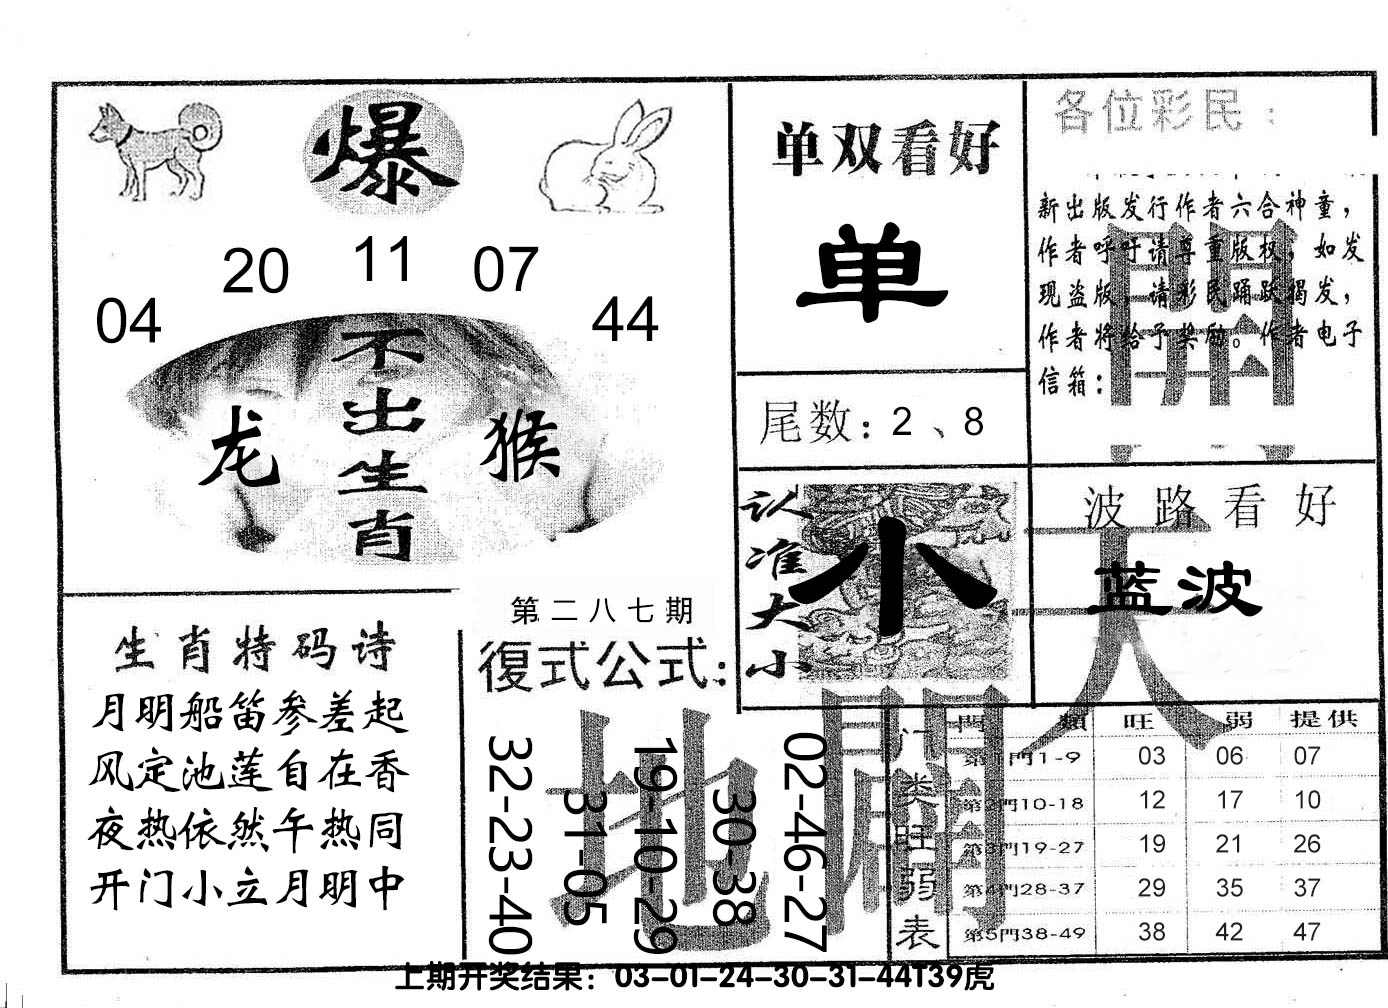 爆
20 11 07
04 44
不出生肖
龙 猴
单双看好
单
尾数：2、8
各位彩民：
新出版发行作者六合神童，
作者呼吁请尊重版权，如发
现盗版，请彩民踊跃揭发，
作者将给予奖励。作者电子
信箱：
開
认准大小
小
波路看好
蓝波
天
生肖特码诗
月明船笛参差起
风定池莲自在香
夜热依然午热同
开门小立月明中
第二八七期
復式公式：
32-23-40
31-05
19-10-29
30-38
02-46-27
地
門類 旺 弱 提供
第1門1-9 03 06 07
第2門10-18 12 17 10
第3門19-27 19 21 26
第4門28-37 29 35 37
第5門38-49 38 42 47
门类旺弱表
上期开奖结果：03-01-24-30-31-44T39虎